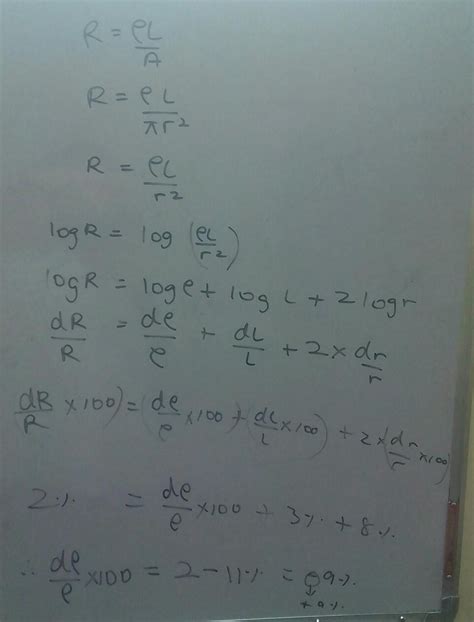 R = ρL/A
R = ρL/πr²
R = ρL/r²
logR = log (ρL/r²)
logR = logρ + log L + 2 logr
dR/R = dρ/ρ + dL/L + 2 × dr/r
dR/R × 100) = (dρ/ρ × 100) + (dL/L × 100) + 2 × (dr/r × 100)
2% = dρ/ρ × 100 + 3% + 8%
∴ dρ/ρ × 100 = 2 - 11% = -9%